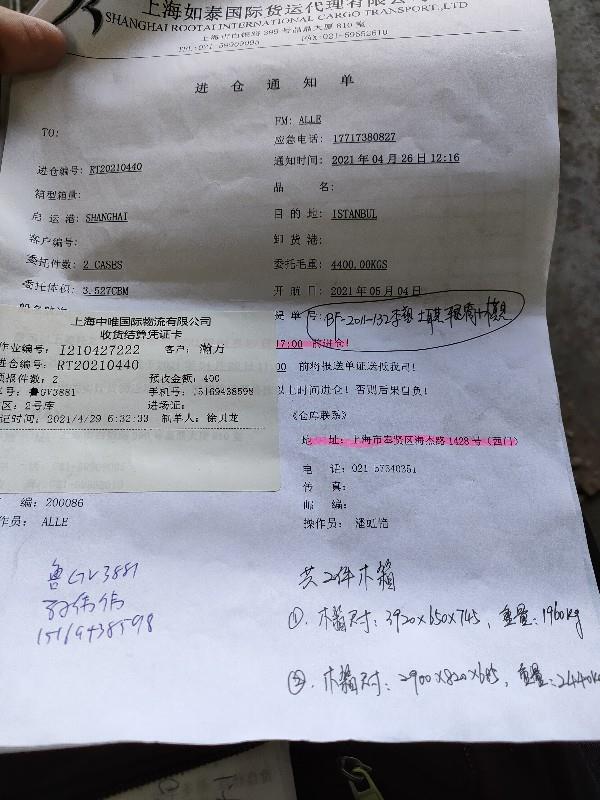 上海如泰国际货运代理有限公司
SHANGHAI ROOTAI INTERNATIONAL CARGO TRANSPORT.,LTD
进 仓 通 知 单
TO:
FM: ALLE
应急电话: 17717380827
进仓编号: RT20210440
通知时间: 2021 年 04 月 26 日 12:16
箱型箱量:
品 名:
启 运 港: SHANGHAI
目 的 地: ISTANBUL
客户编号:
卸 货 港:
委托件数: 2 CASES
委托毛重: 4400.00KGS
委托体积: 3.527CBM
开 航 日: 2021 年 05 月 04 日
提 单 号:
BF-2011-132
17:00 前进仓!
00 前将报送单证送抵我司!
以上时间进仓! 否则后果自负!
上海中唯国际物流有限公司
收货结算凭证卡
作业编号: I210427222 客户: 瀚万
进仓编号: RT20210440
预报件数: 2 预收金额: 400
号: 鲁GV3881 手机号: 15169438598
区: 2号库 进场证:
记时间: 2021/4/29 6:32:33 制单人: 徐贝龙
《仓库联系》
地 址: 上海市奉贤区海杰路 1428 号 (西门)
电 话: 021-57340351
传 真:
邮 编:
操作员:
编: 200086
作员: ALLE
鲁GV3881
15169438598
共2件木箱
①. 木箱尺寸: 3920×650×745, 重量: 1960kg
②. 木箱尺寸: 2900×820×685, 重量: 2440kg